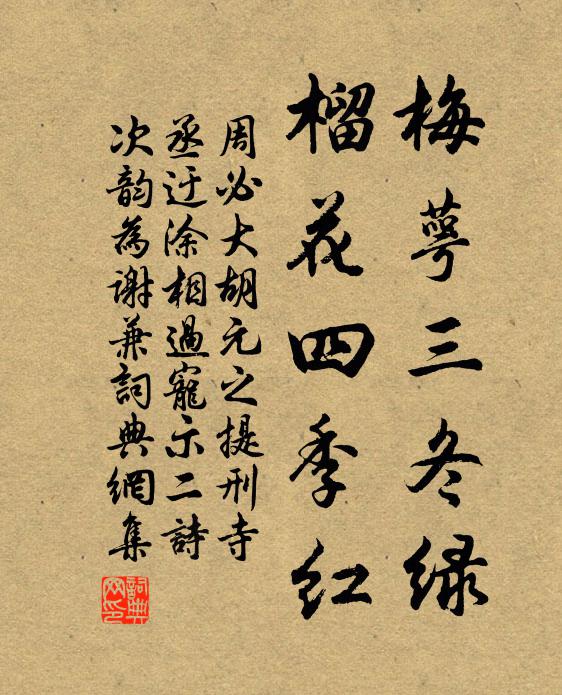 梅萼三冬緑
榴花四季红
周必大胡元之提刑寺
丞迂涂相過寵示二詩
次韵為謝兼詞典網集
詞典网印